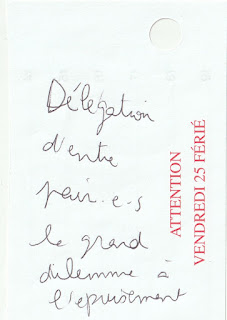 Délégation
d'entre
pair.e.s
le grand
dilemme à
l'épuisement
ATTENTION
VENDREDI 25 FÉRIÉ